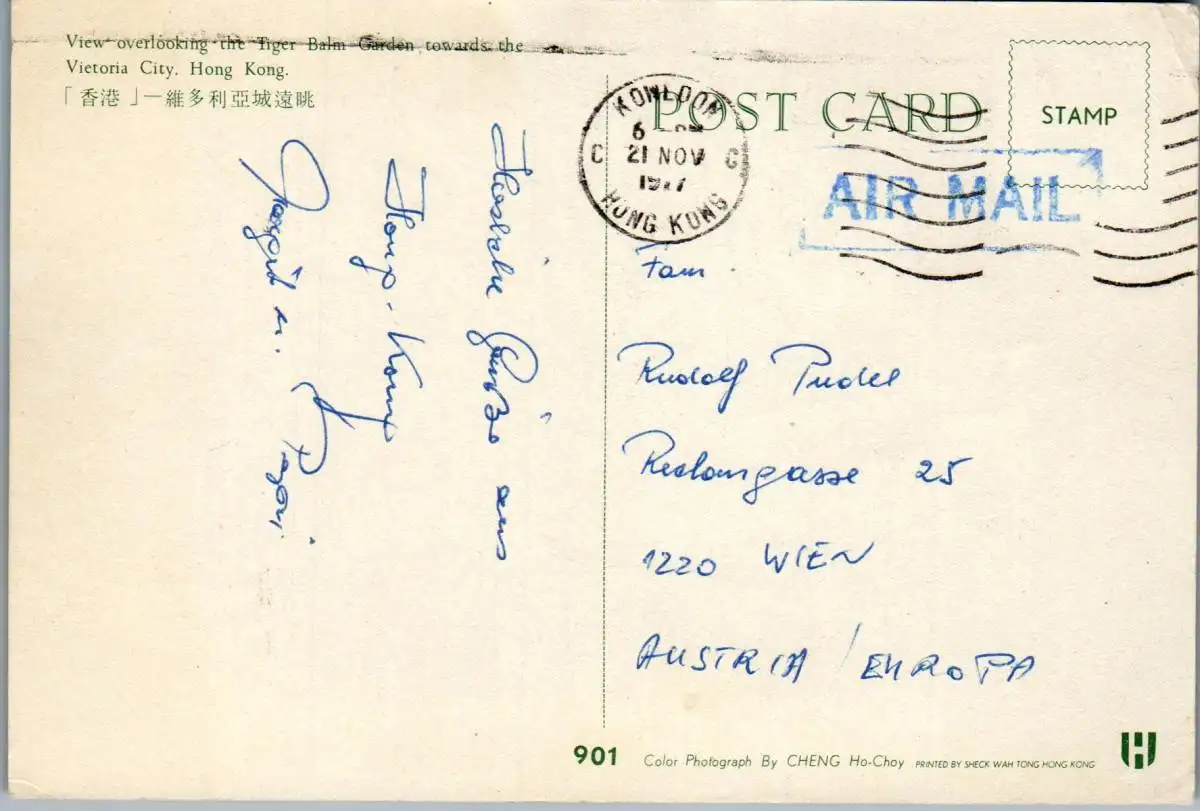 View overlooking the Tiger Balm Garden towards the
Vietoria City. Hong Kong.
「香港」—維多利亞城遠眺
POST CARD
STAMP
KOWLOON
6 PM
C 21 NOV C
1977
HONG KONG
AIR MAIL
Herzliche Grüße aus
Hong-Kong
u.
Fam.
Rudolf Pudel
25
1220 WIEN
AUSTRIA / EUROPA
901 Color Photograph By CHENG Ho-Choy PRINTED BY SHECK WAH TONG HONG KONG